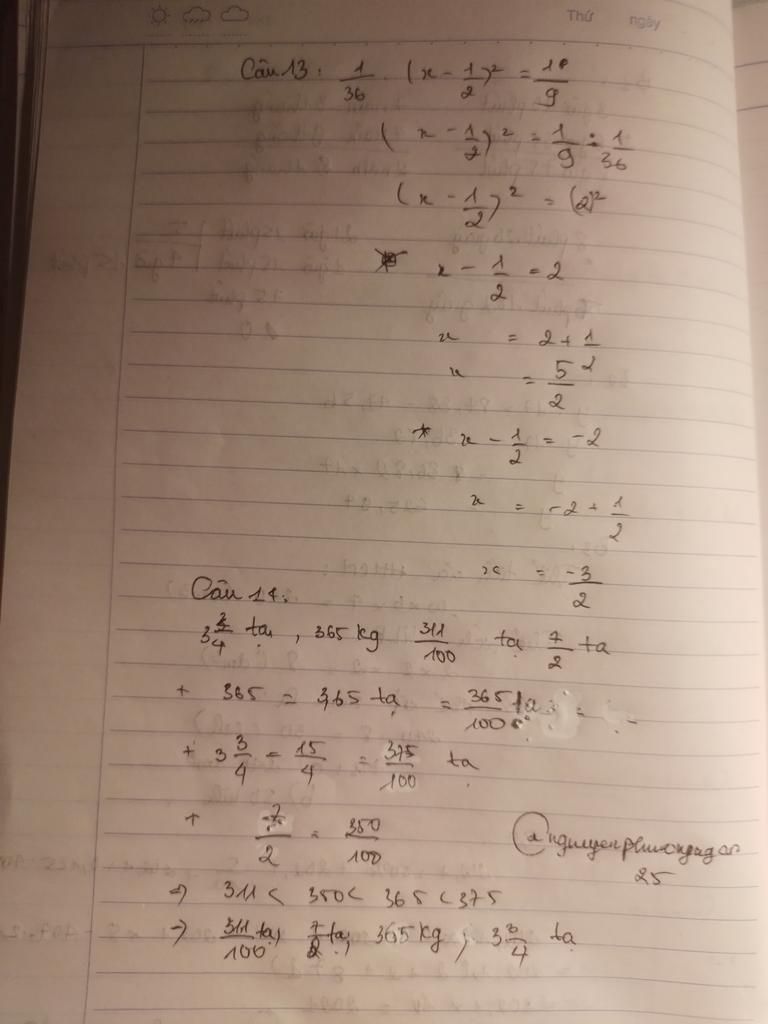 Thứ ngày
Câu 13: 1/36 . (x - 1/2)² = 1/9
(x - 1/2)² = 1/9 : 1/36
(x - 1/2)² = (2)²
x - 1/2 = 2
x = 2 + 1/2
x = 5/2
* x - 1/2 = -2
x = -2 + 1/2
x = -3/2
Câu 14:
3 3/4 tạ, 365 kg 311/100 tạ 7/2 tạ
+ 365 = 3,65 tạ = 365/100 tạ
+ 3 3/4 = 15/4 = 375/100 tạ
+ 7/2 = 350/100
@nguyenphuongdao
25
=> 311 < 350 < 365 < 375
=> 311/100 tạ, 7/2 tạ, 365 kg, 3 3/4 tạ